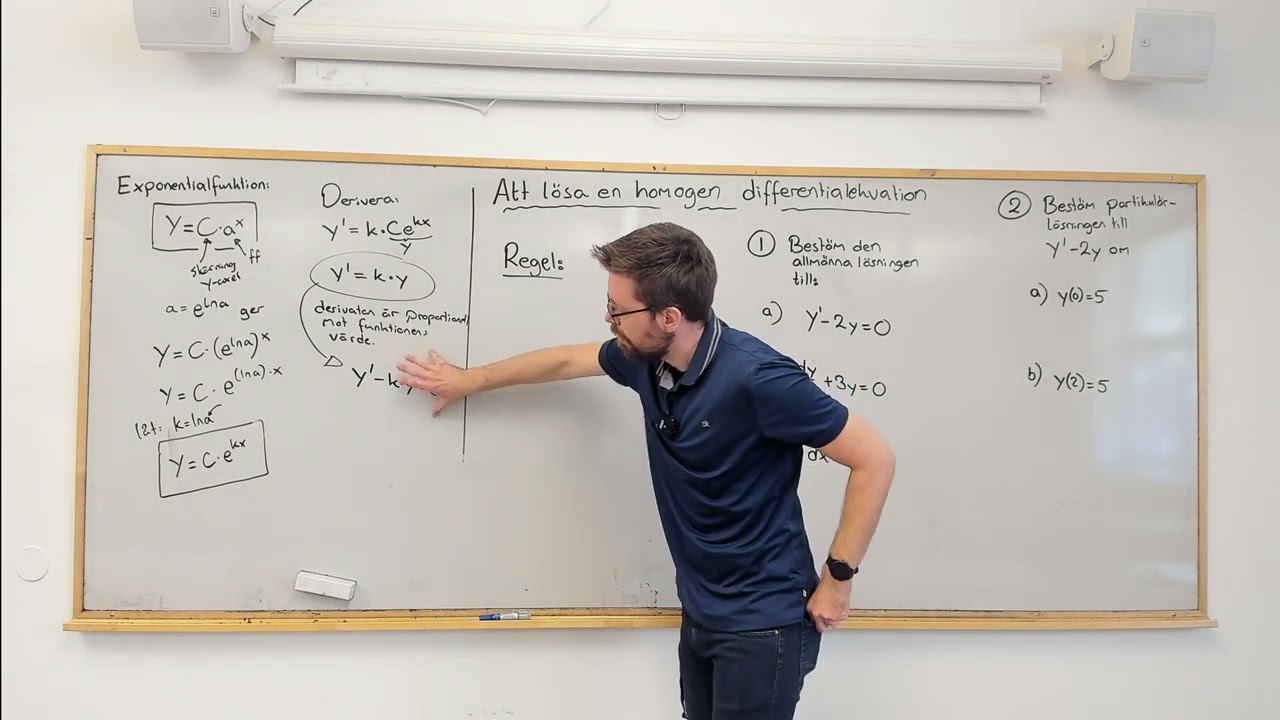 Exponentialfunktion:
Y=C·aˣ
skärning
y-axel
ff
a = e^lna ger
Y=C·(e^lna)ˣ
Y=C·e^(lna)·x
låt: k=lna
Y=C·e^kx
Derivera:
Y'=k·Ce^kx
Y
Y'=k·y
derivatan är proportionell
mot funktionens
värde.
Y'-k
Att lösa en homogen differentialekvation
Regel:
1 Bestäm den
allmänna lösningen
till:
a) Y'-2y=0
dy
+3y=0
dx
2 Bestäm partikulär-
lösningen till
Y'-2y om
a) y(0)=5
b) y(2)=5